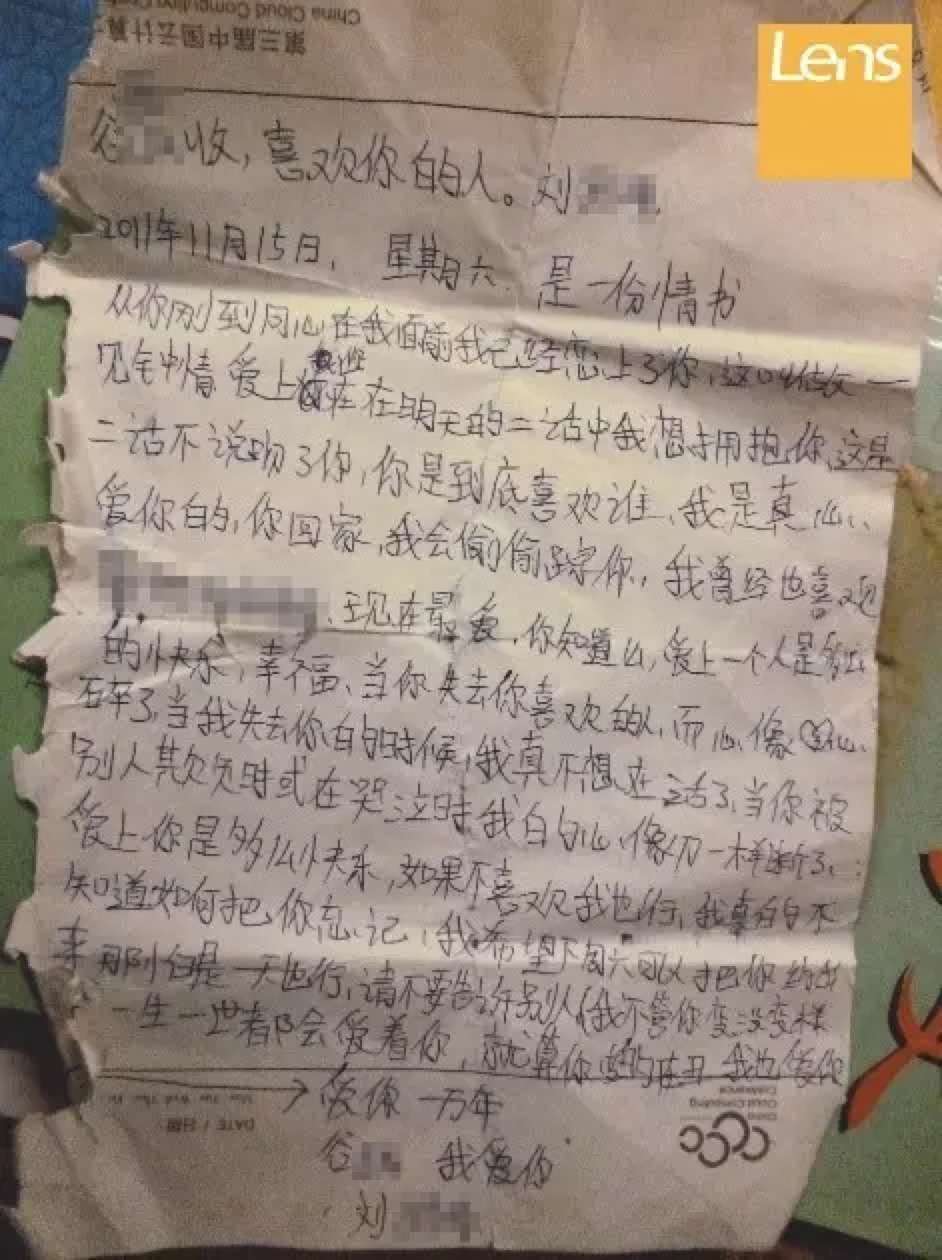 China Cloud Computing
第三届中国云计算
Lens
谷 收，喜欢你的人。刘
2011年11月15日， 星期六 是一份情书
从你刚到同心在我面前我已经恋上了你，这叫做一
见钟情 爱上 在明天的二话中我想拥抱你，这是
二话不说吻了你，你是到底喜欢谁、我是真心、
爱你的，你回家，我会偷偷跟踪你，我曾经也喜欢
、现在最爱，你知道么，爱上一个人是多么
的快乐，幸福、当你失去你喜欢的人，而心像 心
碎了，当我失去你的时候，我真不想 活了、当你被
别人欺负时或在哭泣时我的心、像刀一样 了、
爱上你是多么快乐，如果不喜欢我也行，我真的不
知道如何把你忘记，我希望下周六可以把你约出
来 那怕是一天也行，请不要告诉别人（我不管你变没变样
一生一世都会爱着你，就算你 丑 我也爱你
→爱你 一万年
DATE / 日期
China
Cloud Computing
Conference
CCCC
谷 我爱你
刘